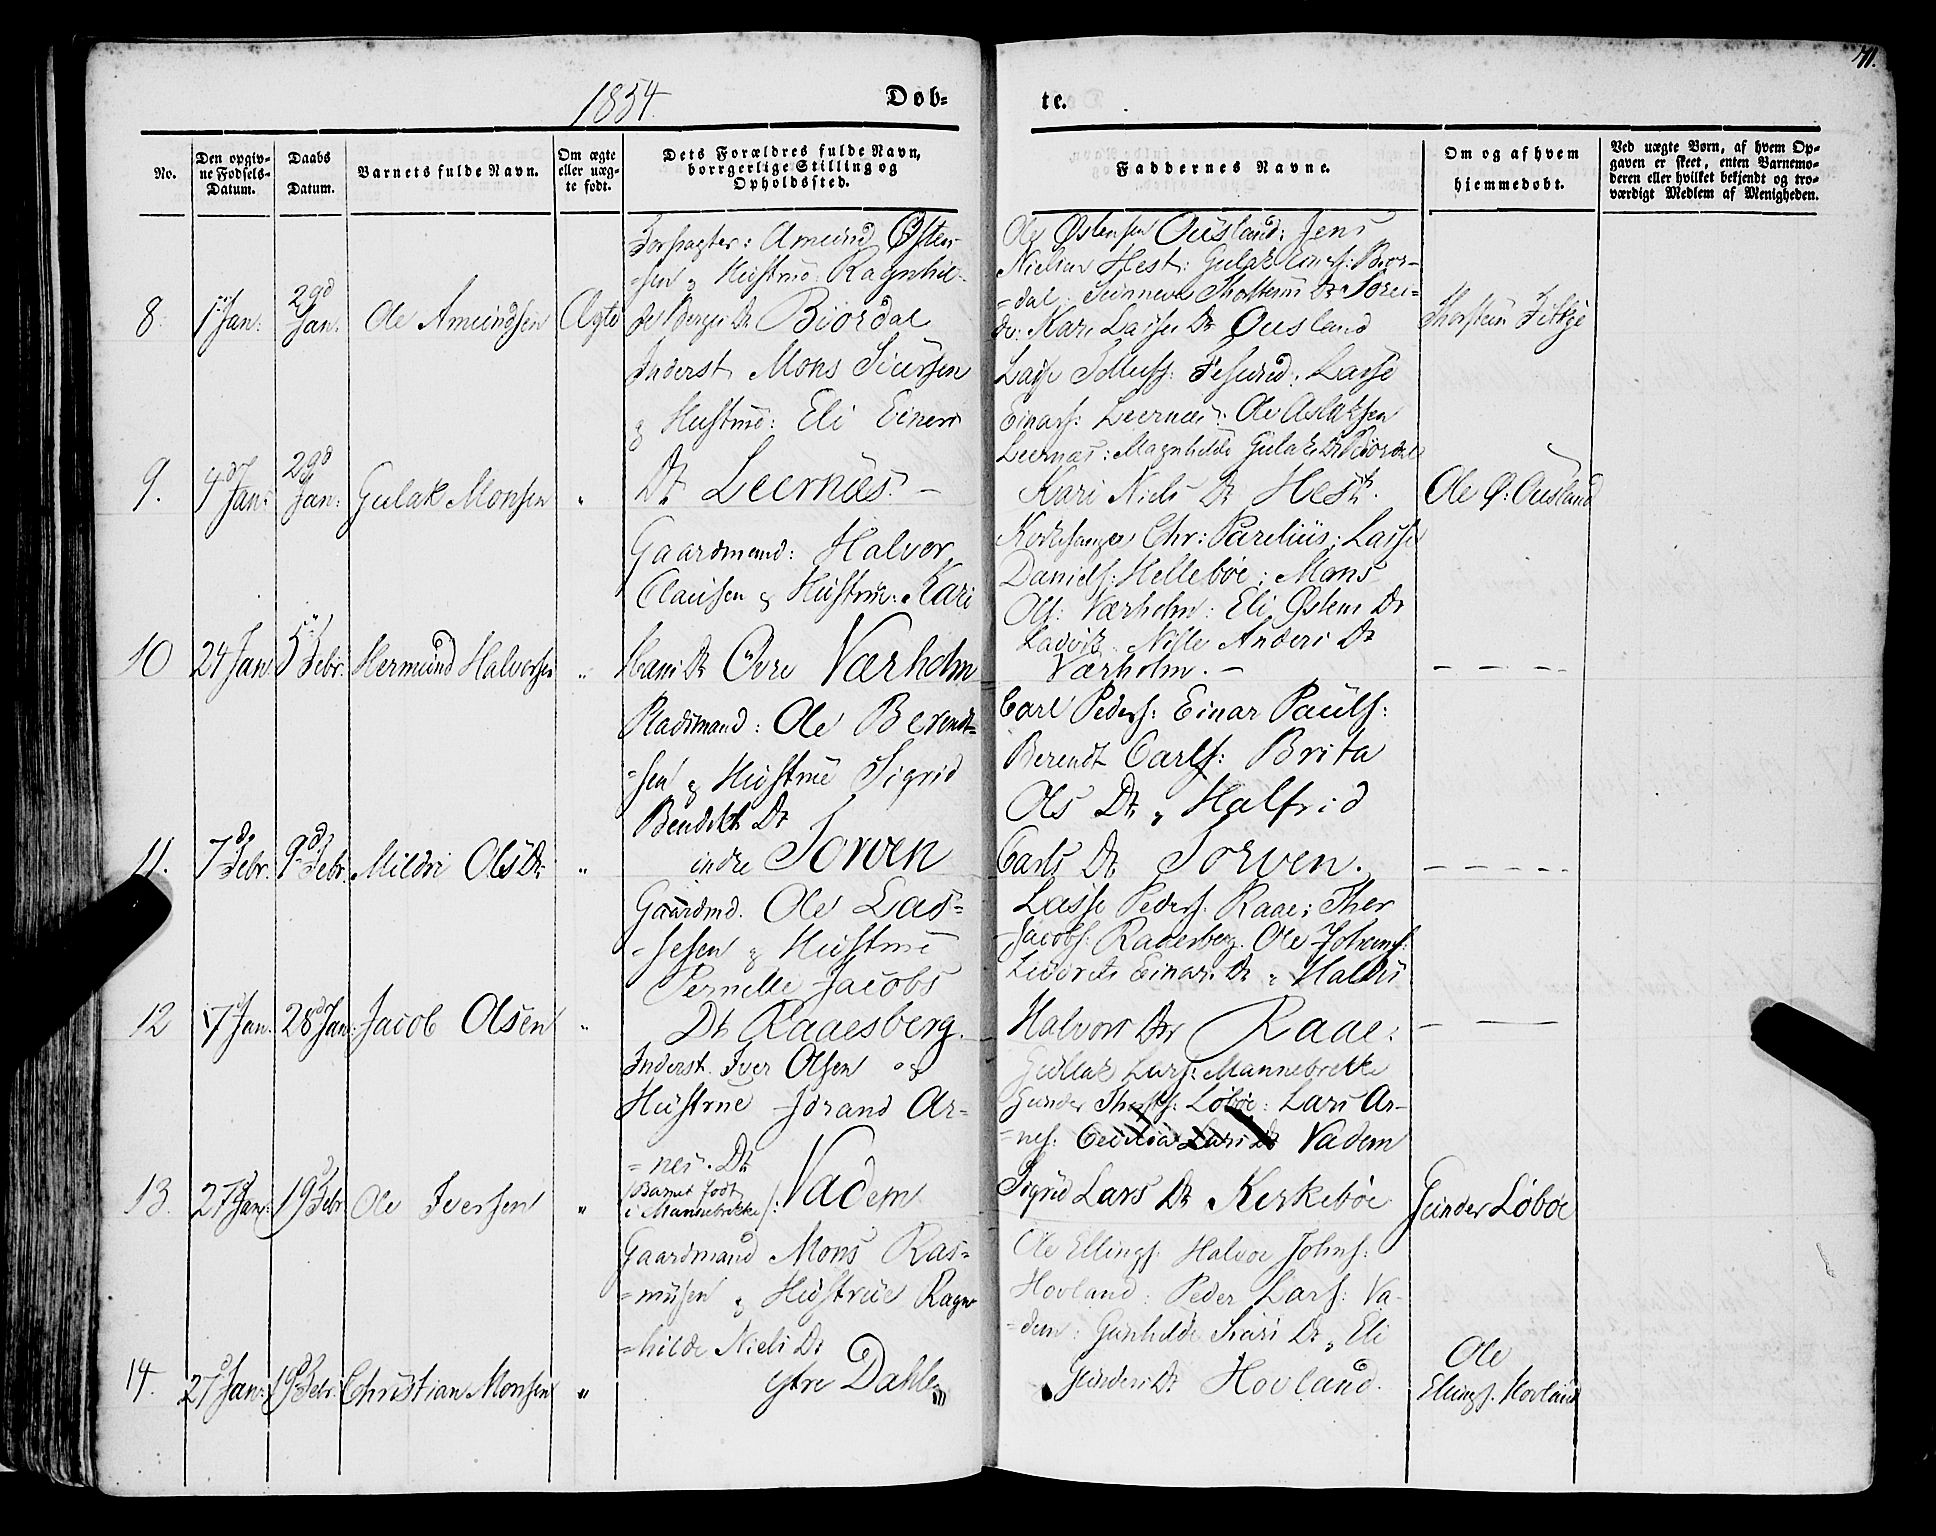 71.
1854.
Døb=
te.
No.
Den opgiv=
ne Fødsels=
Datum.
Daabs
Datum.
Barnets fulde Navn.
Om ægte
eller uæg=
te født.
Dets Forældres fulde Navn,
borgerlige Stilling og
Opholdssted.
Faddernes Navne.
Om og af hvem
hjemmedøbt.
Ved uægte Børn, af hvem Op=
gaven er skeet, enten Barnemo=
deren eller hvilket bekjendt og tro=
værdigt Medlem af Menigheden.
8. 1 Jan: 29d Jan: Ole Amundsen Ægte
Forpagter: Amund Østen=
=sen & Hustrue Ragnhil=
de Dr Biordal
Ole Østensen Ousland: Jens
Nielsen Hest: Gulak Bior=
=dal:
de: Kari Lasse Dr Ousland
Thorstein
9. 4d Jan: 29d Jan: Gulak Monsen "
Inderst Mons Siursen
& Hustrue: Eli Einers
Dr Leernæs. –
Lasse Lasse
Einars: Leernæs: Ole Aslaksen
Leernæs: Magnhilde Gulaks Dr Biordal
Kari Niels Dr Hest.
Ole Ø: Ousland
10 24 Jan 5 Febr: Hermund Halvorsen "
Gaardmand: Halvor
Clausen & Hustrue: Kari
Dr Øvre Værholm
Kirkesanger Chr: Parelius: Lasse
Daniels: Hellebøe: Mons
Ols: Værholm: Eli Østens Dr
Ladvik Anders Dr
Værholm. –
– – – –
11. 7d Febr: 9d Febr: Mildri Ols Dr "
Pladsmand: Ole Berendt=
=sen & Hustrue Sigrid
Bendikt Dr
indre Torven
Carl Peders: Einar Pauls:
Berendt Carls: Brita
Ols Dr & Halfrid
Carls Dr Torven.
– – – – –
12 7 Jan. 28d Jan: Jacob Olsen "
Gaardmd. Ole Las=
=sesen & Hustrue
Pernille Jacobs
Dr Raaesberg.
Lasse Peders. Raae; Ther
Jacobs: Raaesberg. Ole Johans:
Einars Dr
Halvors Dr Raae:
– –
13. 27d Jan: 19d Febr Ole Iversen "
Inderst. Iver Olsen og
Hustrue Jorand Ar=
=nes. Dr
(Barnet født
i Mannebrekke): Vadem
Gullak Lars: Mannebrekke
Gunder Løbøe: Lars Ar=
=nes: Cecilia Lars Dr Vadem
Sigrid Lars Dr Kirkebøe
Gunder Løbøe
14. 27d Jan: 19d Febr: Christian Monsen "
Gaardmand Mons Ras=
=musen & Hustrue Ragn=
=hilde Niels Dr
ytre Dahle
Ole Ellings: Halvor Johns:
Hovland: Peder Lars: Va=
=dem: Gunhilde Dr & Eli
Gunders Dr Hovland.
Ole
Ellings. Hovland